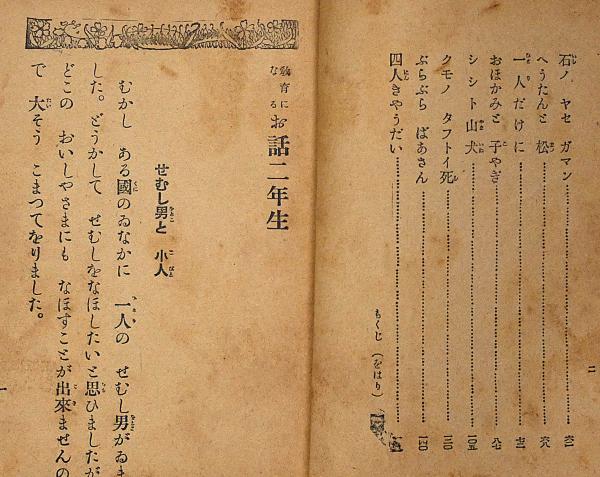 二
石ノ ヤセ ガマン……六一
へうたんと 松……六八
一人だけに……七三
おほかみと 子やぎ……八七
シシト 山犬……一〇五
クモノ タフトイ 死……
ぶらぶら ばあさん……
四人きやうだい……
もくじ (をはり)
教育になる お話二年生
せむし男と 小人
むかし ある國のゐなかに 一人の せむし男がゐま
した。どうかして せむしをなほしたいと思ひましたが
どこの おいしやさまにも なほすことが出來ませんの
で 大そう こまつてをりました。
一